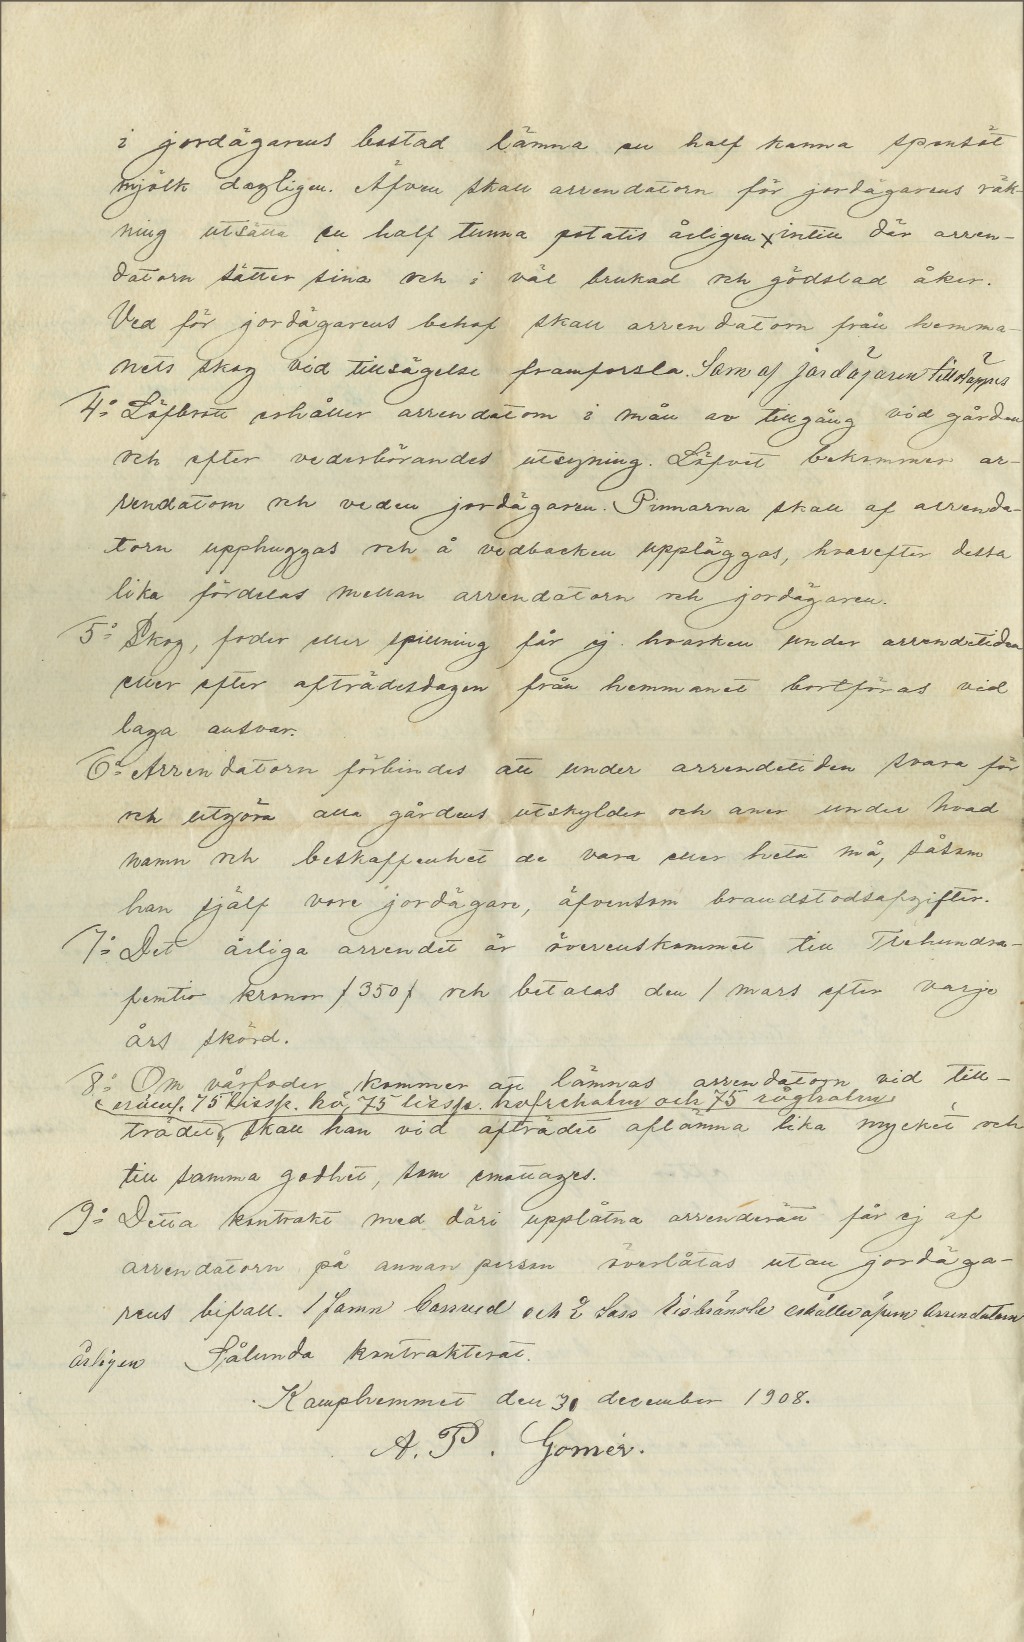 i jordägarens bostad lämna en half kanna spensöt
mjölk dagligen. Äfven skall arrendatorn för jordägarens räk-
ning utsätta en half tunna potatis årligen x intill där arren-
datorn sätter sina och i väl brukad och gödslad åker.
Ved för jordägarens behof skall arrendatorn från hemma-
nets skog vid tillsägelse framforsla. Som af jordägaren tillsläppes
4:o Löfbrott erhåller arrendatorn i mån av tillgång vid gården
och efter vederbörandes utsyning. Löfvet bekommer ar-
rendatorn och veden jordägaren. Pinnarna skall af arrenda-
torn upphuggas och å vedbacken uppläggas, hvarefter dessa
lika fördelas mellan arrendatorn och jordägaren.
5:o Skog, foder eller spillning får ej hvarken under arrendetiden
eller efter afträdesdagen från hemmanet bortföras vid
laga ansvar.
6:o Arrendatorn förbindes att under arrendetiden svara för
och utgöra alla gårdens utskylder och aner under hvad
namn och beskaffenhet de vara eller heta må, såsom
han själf vore jordägare, äfvensom brandstodsafgifter.
7:o Det årliga arrendet är överenskommet till Trehundra-
femtio kronor /350/ och betalas den 1 mars efter varje
års skörd.
8:o Om vårfoder kommer att lämnas arrendatorn vid till-
75 lissp. hö, 75 lissp. hafrehalm och 75 råghalm
trädet, skall han vid afträdet aflämna lika mycket och
till samma godhet, som emottages.
9:o Detta kontrakt med däri upplåtna arrenderätt får ej af
arrendatorn på annan person överlåtas utan jordäga-
rens bifall. 1 famn och 2 Lass erhåller äfven Arrendatorn
årligen Sålunda kontrakterat.
Kamphemmet den 30 december 1908.
A. P. Gomér.